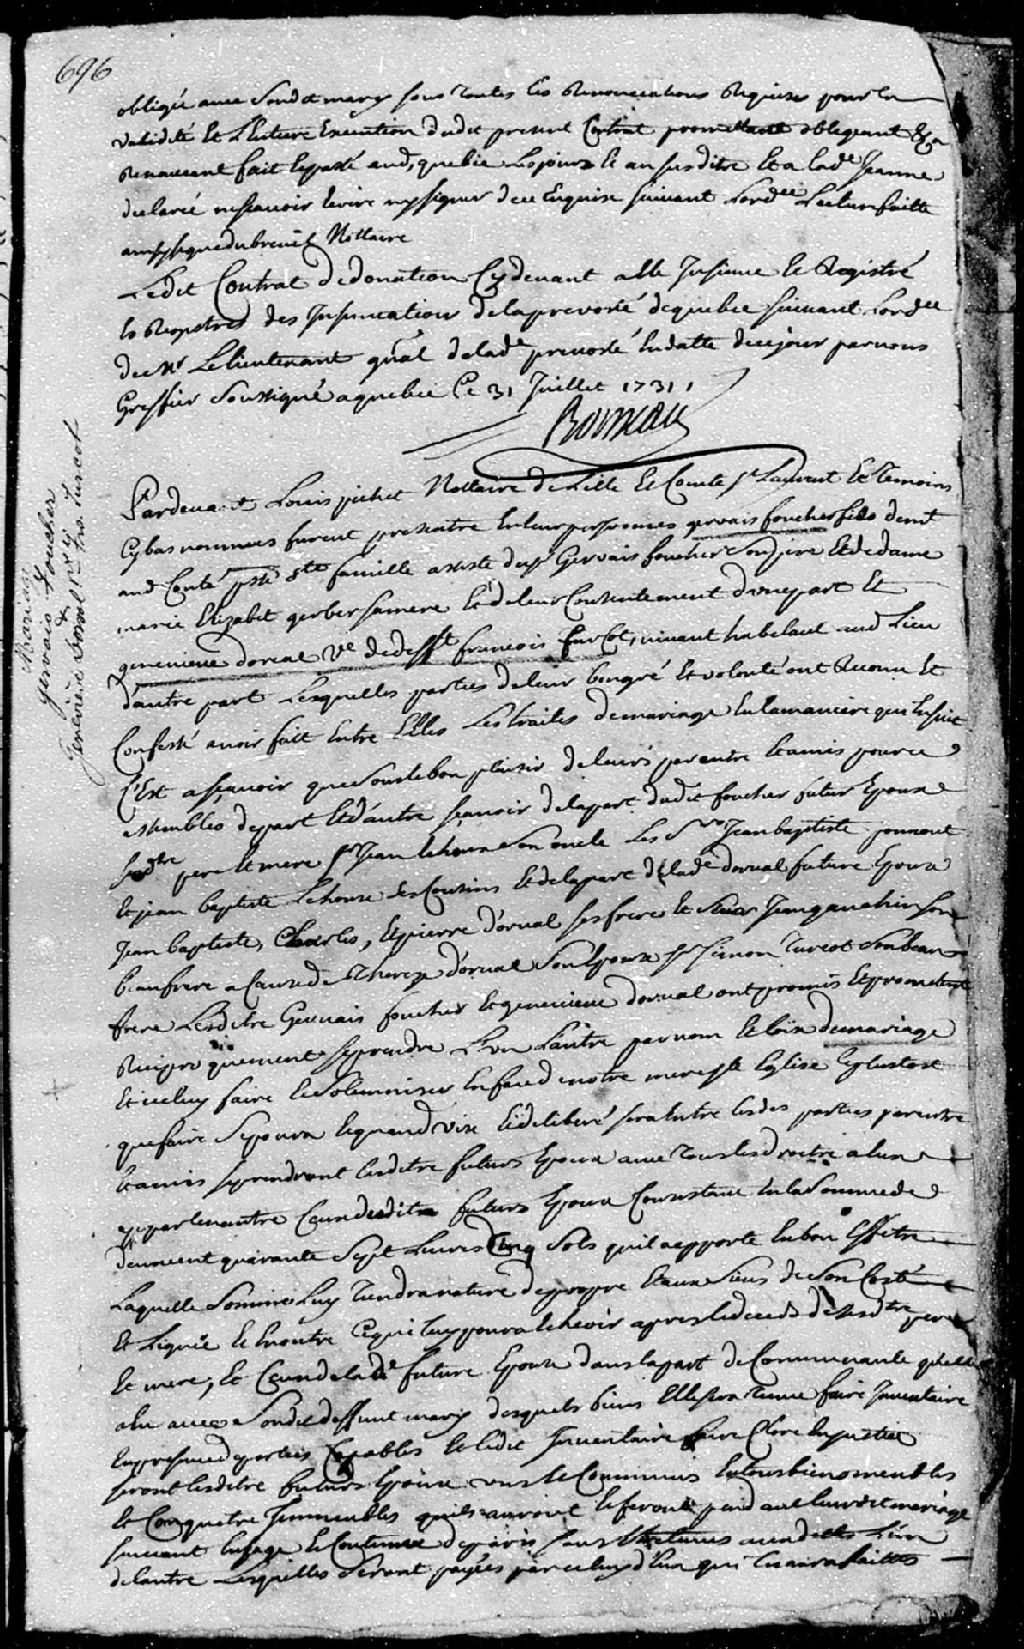 696
obligée avec Sondt mary sous toutes les Renonciations Requises pour la
validité et Lentiere Execution dudit present Contrat promettant obligeant &a
Renonceant fait et passé aud, quebec les jours et an susdits et a lade Jeanne
declaré ne scavoir Ecrire ny signer de ce Enquise suivant Lordce Lecture faitte
ainsy signé dubreuil Nottaire
Ledit Contrat de donation Cy devant a Eté Insinué et Registré
Es Registres des Insinuations de la prevosté de quebec suivant Lordce
de Mr Le lieutenant gñal de lade prevosté En datte de ce jour par nous
Greffier Soussigné a quebec Ce 31 Juillet 1731,
Boisseau
Mariage
gervais Foucher
&
Genevieve Dorval Ve frs. Turcot
Pardevant Louis pichet Nottaire de L'isle Et Comté St Laurent Et Temoins
Cy bas nommés furent presents En leurs personnes gervais foucher fils demt
aud Conté psse Ste famille assisté du Sr Gervais foucher Son pere Et de dame
marie Elizabet gerber Sa mere Et de leur Consentement d'une part Et
genevieve dorval Ve de deffft francois Turcot, vivant habitant aud Lieu
d'autre part Lesquelles parties de leur bon gré Et volonté ont Reconu Et
Confessé avoir fait Entre Elles Les traités de mariage En la maniere qui Ensuit
C'Est a scavoir que Sous le bon plaisir de leurs parents Et amis pour ce
assemblés de part Et d'autre scavoir de la part dudit foucher futur Epoux
sesdts pere Et mere Sr Jean Lehoux Son oncle Les Srs Jean baptiste
Et jean baptiste Lehoux ses Cousins Et de la part de lade dorval future Epouse
Jean baptiste, Charles, Et pierre dorval ses freres Et Sieur Jean gaulin Son
beaufrere a Cause de Therese dorval Son Epouse Sr Simon Turcot Son beau
frere Lesdits Gervais foucher Et genevieve dorval ont promis Et promettent
Reciproquement se prendre L'un L'autre par nom Et loix de mariage
Et iceluy faire Et Solemniser En face de notre mere Ste Eglise Le plustost
que faire Se poura Et quand avisé Et deliberé sera Entre lesdes parties parents
Et amis se prendront lesdits futurs Epoux avec tous les droits a Eux
appartenants Consdesdits futurs Epoux Consistant En la Somme de
deux cent quarante Sept Livres Cinq Sols qu'il apporte En bon Effets
Laquelle Somme Luy Tiendra nature de propre Et aux Siens de Son Costé
Et Ligne Et En outre Ce qui luy poura Echeoir apres le deceds de Sesdts pere
Et mere, Et Ceux de lade future Epouse dans la part de Communauté qu'elle
a Eu avec Sondit deffunt mary desquels biens Elle sera tenue faire Inventaire
En presence de parties Capables Et ledit Inventaire faire Clore En justice
seront lesdits futurs Epoux uns Et Communs En tous biens meubles
Et Conquets Immeubles qu'ils auront Et feront pendant leurdit mariage
suivant L'usage Et Coutume de paris sans Etre tenus aux dettes L'un
de l'autre Lesquelles Seront payées par celuy d'Eux qui les aura faittes